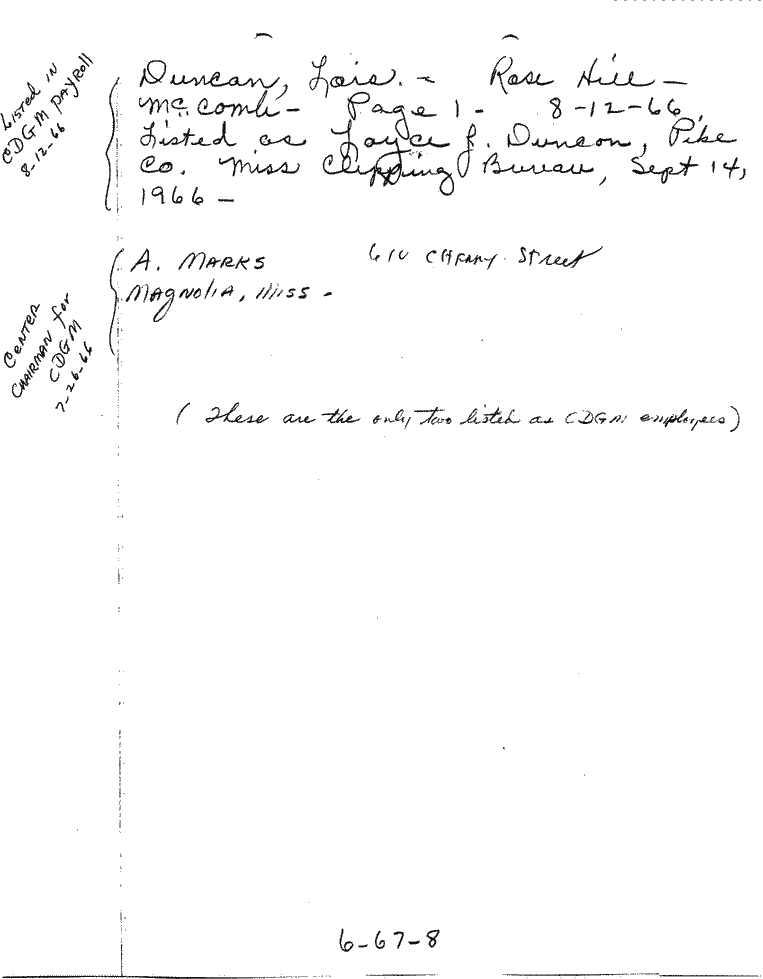 Listed in
CDGM Payroll
8-12-66
Duncan, Lois. - Rose Hill -
McComb - Page 1 - 8-12-66,
Listed as Joyce J. Duncan, Pike
Co. Miss Clipping Bureau, Sept 14,
1966 -
Center
Chairman for
CDGM
7-26-66
A. Marks 610 Cherry Street
Magnolia, Miss -
(These are the only two listed as CDGM employees)
6-67-8